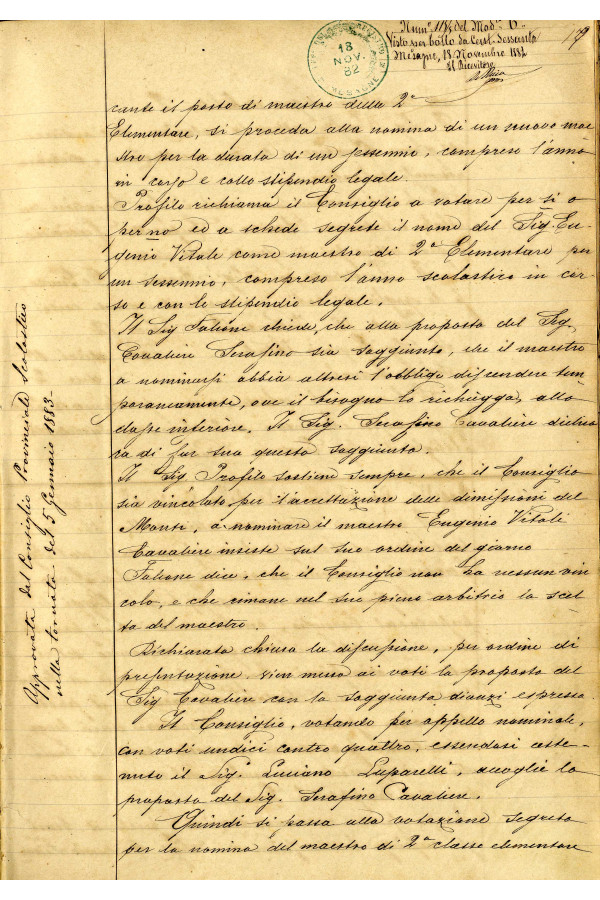 Num° 1183 del Mod° D
Visto per bollo da Cent. Sessanta
Mesagne, 18 Novembre 1882
Il Ricevitore
19
18
NOV.
82
MESAGNE
cante il posto di maestro della 2ª
Elementare, si proceda alla nomina di un nuovo mae
stro per la durata di un sessennio, compreso l'anno
in corso e collo stipendio legale.
Profilo richiama il Consiglio a votare per sì o
per no ed a schede segrete il nome del Sig. Eu-
genio Vitale come maestro di 2ª Elementare per
un sessennio, compreso l'anno scolastico in cor-
so e con lo stipendio legale.
Il Sig Falione chiede, che alla proposta del Sig.
Cavaliere Serafino sia soggiunto, che il maestro
a nominarsi abbia altresì l'obbligo di scendere tem
poraneamente, ove il bisogno lo richiegga, alla
classe inferiore. Il Sig. Serafino Cavaliere dichia
ra di far sua questa soggiunta.
Il Sig Profilo sostiene sempre, che il Consiglio
sia vincolato per l'accettazione delle dimissioni del
Monti, a nominare il maestro Eugenio Vitali
Cavaliere insiste sul suo ordine del giorno
Falione dice, che il Consiglio non ha nessun vin
colo, e che rimane nel suo pieno arbitrio la scel
ta del maestro.
Dichiarata chiusa la discussione, per ordine di
presentazione vien messa ai voti la proposta del
Sig Cavaliere con la soggiunta dianzi espressa.
Il Consiglio, votando per appello nominale,
con voti undici contro quattro, essendosi aste-
nuto il Sig. Luciano Luparelli, accoglie la
proposta del Sig. Serafino Cavaliere.
Quindi si passa alla votazione segreta
per la nomina del maestro di 2ª classe elementare
Approvata dal Consiglio Provinciale Scolastico
nella tornata del 5 Gennaio 1883.